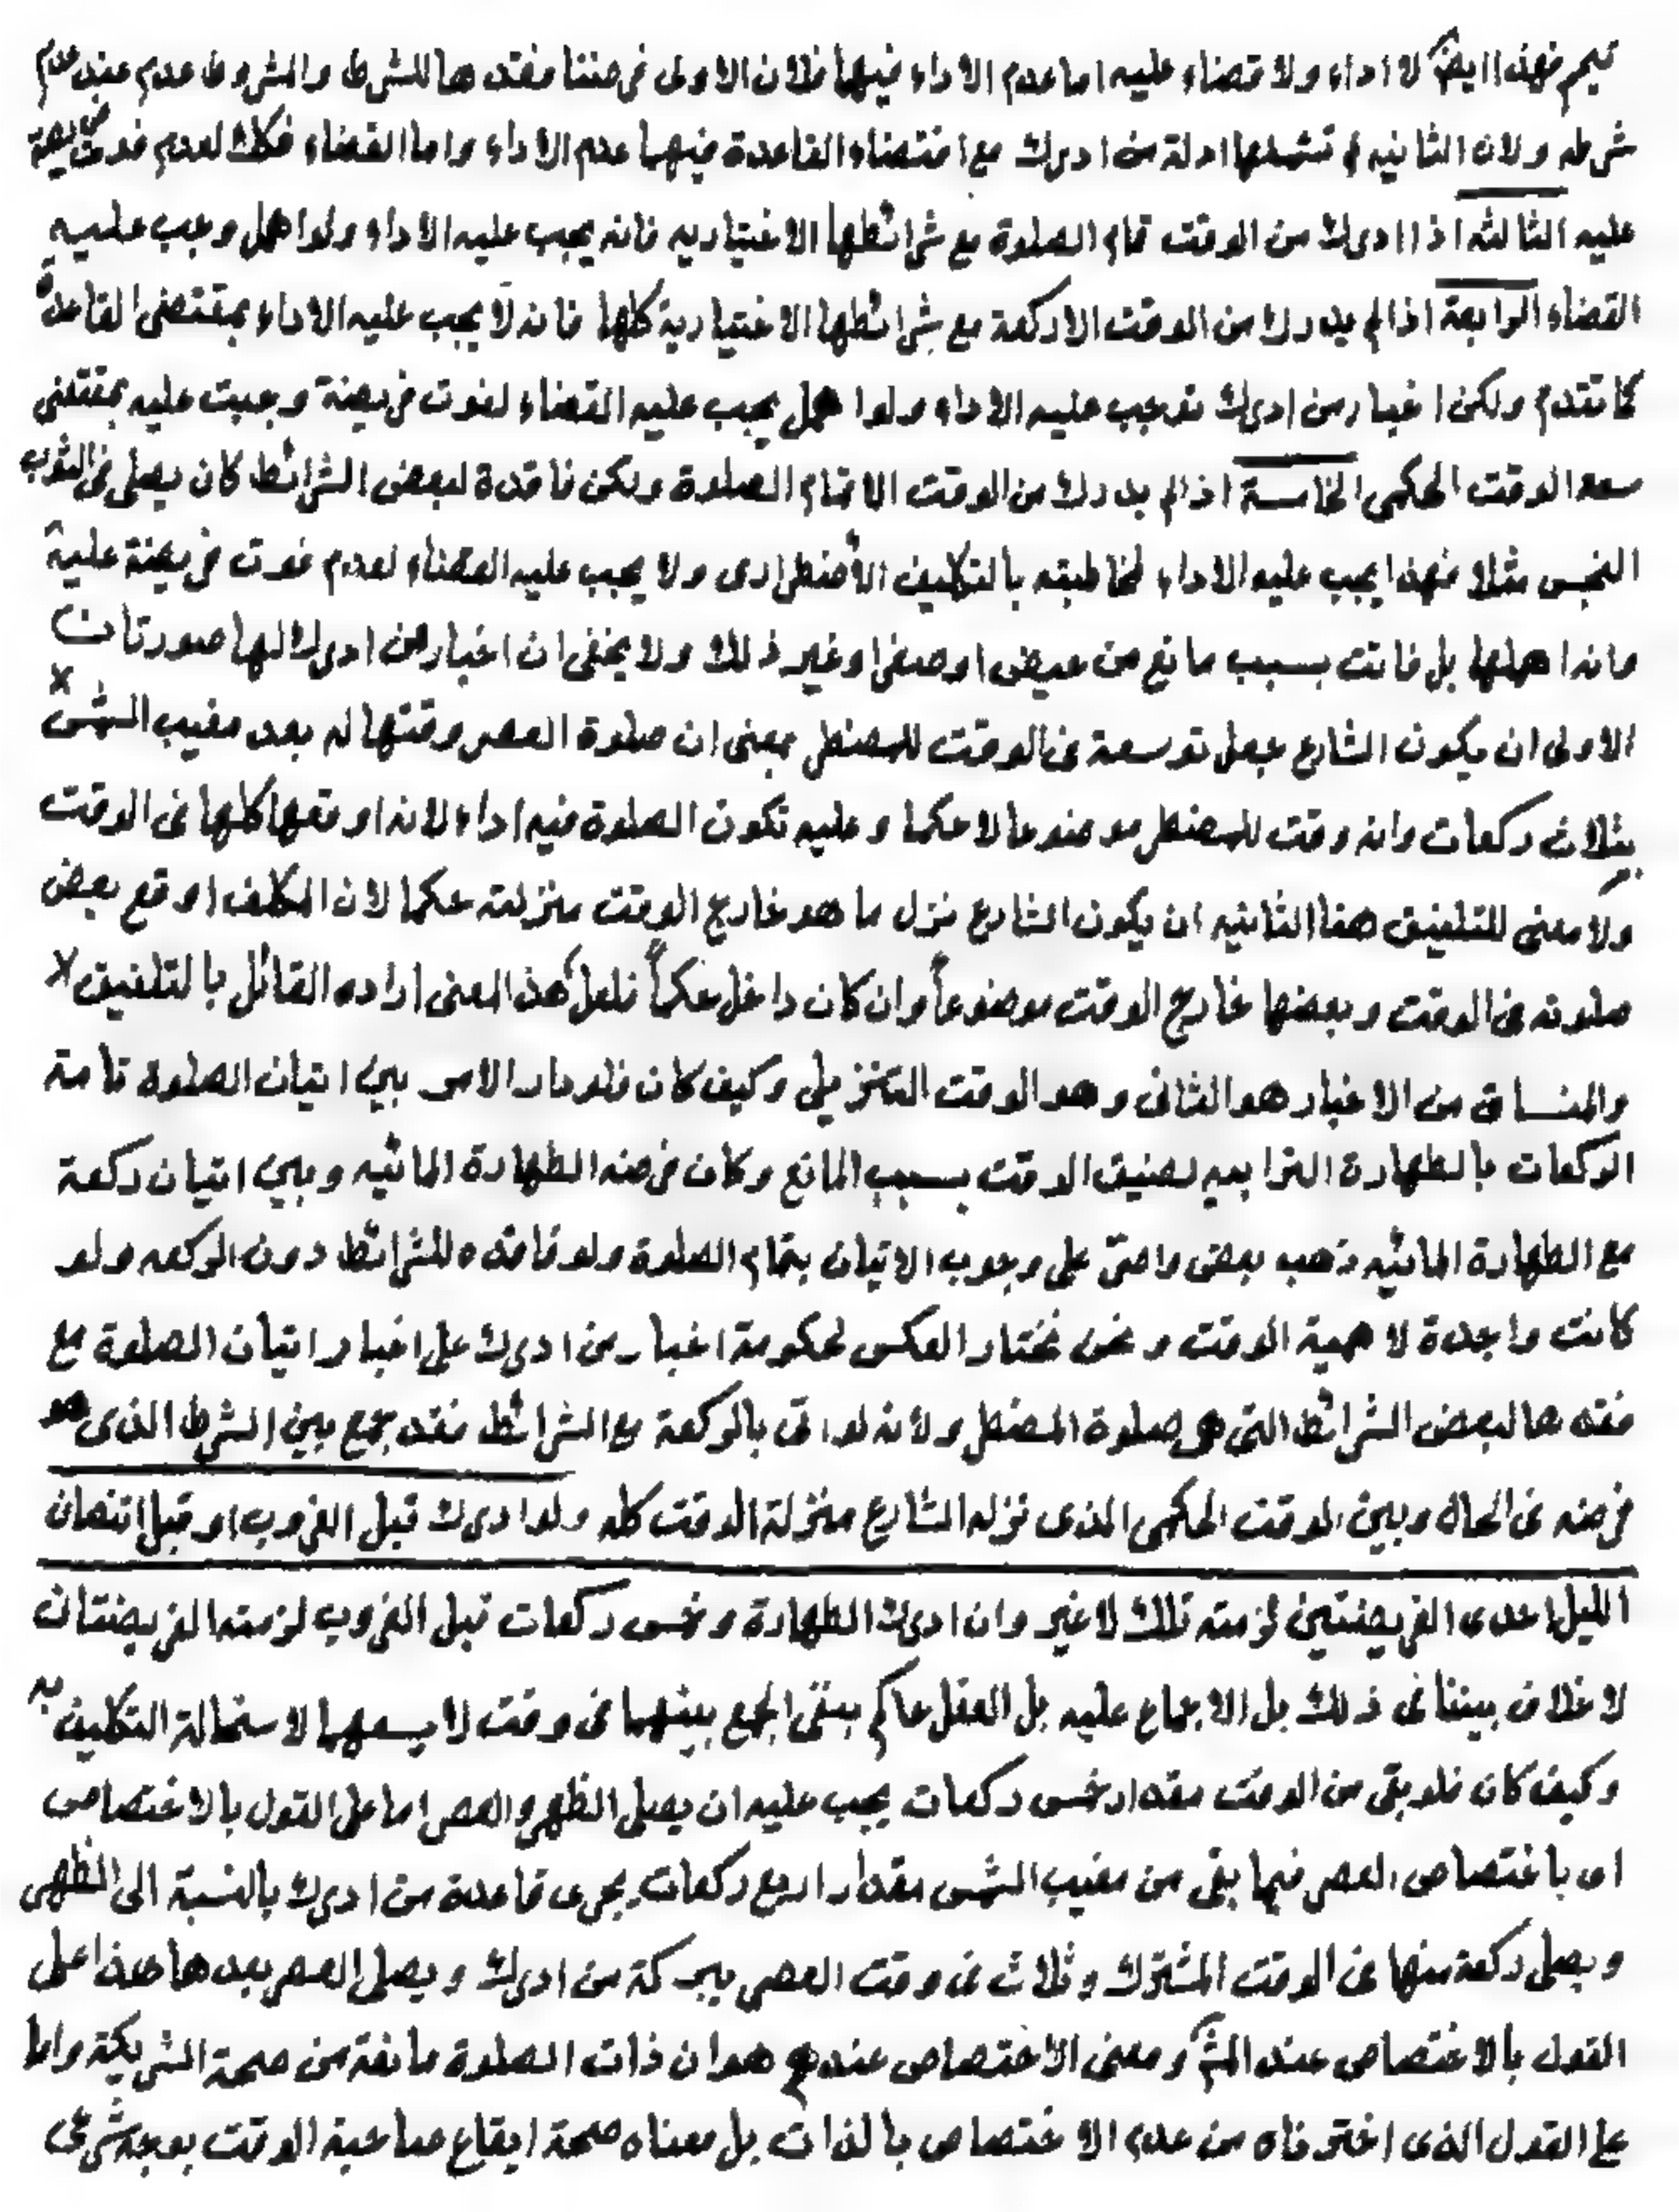 تيمم فهذا ايضا لا اداء ولا قضاء عليه اما عدم الاداء فيها فلان الاولى فرضنا فقدها للشرط والمشروط عدم عند عدم
شرطه ولان الثانيه لم تشملها ادلة من ادرك مع اقتضاء القاعدة فيهما عدم الاداء واما القضاء فكك لعدم فوت فريضة
عليه الثالثه اذا ادرك من الوقت تمام الصلوة مع شرائطها الاختياريه فانه يجب عليه الاداء ولو اهمل وجب عليه
القضاء الرابعة اذا لم يدرك من الوقت الا ركعة مع شرائطها الاختيارية كلها فانه لا يجب عليه الاداء بمقتضى القاعدة
كما تقدم ولكن اخبار من ادرك توجب عليه الاداء ولو اهمل يجب عليه القضاء لفوت فريضة وجبت عليه بمقتضى
سعه الوقت الحكمى الخامسة اذا لم يدرك من الوقت الا تمام الصلوة ولكن فاقدة لبعض الشرائط كان يصلى فى الثوب
النجس مثلا فهذا يجب عليه الاداء لمخاطبته بالتكليف الأضطرارى ولا يجب عليه القضاء لعدم فوت فريضة عليه
وانه اهملها بل فاتت بسبب مانع من حيض او صغر او غير ذلك ولا يخفى ان اخبار من ادرك لها صورتان
الاولى ان يكون الشارع جعل توسعة فى الوقت للمضطر بمعنى ان صلوة العصر وقتها له بعد مغيب الشمس
بثلاث ركعات وانه وقت للمضطر موضوعا لا حكما وعليه تكون الصلوة فيه اداء لانه اوقعها كلها فى الوقت
ولا معنى للتلفيق هنا الثانيه ان يكون الشارع نزل ما هو خارج الوقت منزلته حكما لان المكلف اوقع بعض
صلوته فى الوقت وبعضها خارج الوقت موضوعاً وان كان داخل حكماً فلعل هذا المعنى اراده القائل بالتلفيق
والمنساق من الاخبار هو الثانى وهو الوقت التنزيلى وكيف كان فلو دار الامر بين اتيان الصلوة تامة
الركعات بالطهارة الترابيه لضيق الوقت بسبب المانع وكان فرضه الطهارة المائيه وبين اتيان ركعة
مع الطهارة المائيه ذهب بعض واصرّ على وجوب الاتيان بتمام الصلوة ولو فاقده للشرائط دون الركعه ولو
كانت واجدة لاهمية الوقت ونحن نختار العكس لحكومة اخبار من ادرك على اخبار اتيان الصلوة مع
فقدها لبعض الشرائط التى هى صلوة المضطر ولأنه لو اتى بالركعة مع الشرائط فقد جمع بين الشرط الذى هو
فرضه فى الحال وبين الوقت الحكمى الذى نزله الشارع منزلة الوقت كله ولو ادرك قبل الغروب او قبل انتصاف
الليل احدى الفريضتين لزمته تلك لا غير وان ادرك الطهارة وخمس ركعات قبل الغروب لزمته الفريضتان
لا خلاف بيننا فى ذلك بل الاجماع عليه بل العقل حاكم بنفى الجمع بينهما فى وقت لا يسعهما لاستحالة التكليف به
وكيف كان فلو بقى من الوقت مقدار خمس ركعات يجب عليه ان يصلى الظهر والعصر اما على القول بالاختصاص
اى باختصاص العصر فيما بقى من مغيب الشمس مقدار اربع ركعات يجرى قاعدة من ادرك بالنسبة الى الظهر
ويصلى ركعة منها فى الوقت المشترك وثلاث فى وقت العصر ببركة من ادرك ويصلى العصر بعدها هذا على
القول بالاختصاص عند المش ومعنى الاختصاص عندهم هو ان ذات الصلوة مانعة من صحة الشريكة واما
على القول الذى اخترناه من عدم الاختصاص بالذات بل معناه صحة ايقاع صاحبة الوقت بوجه شرعى